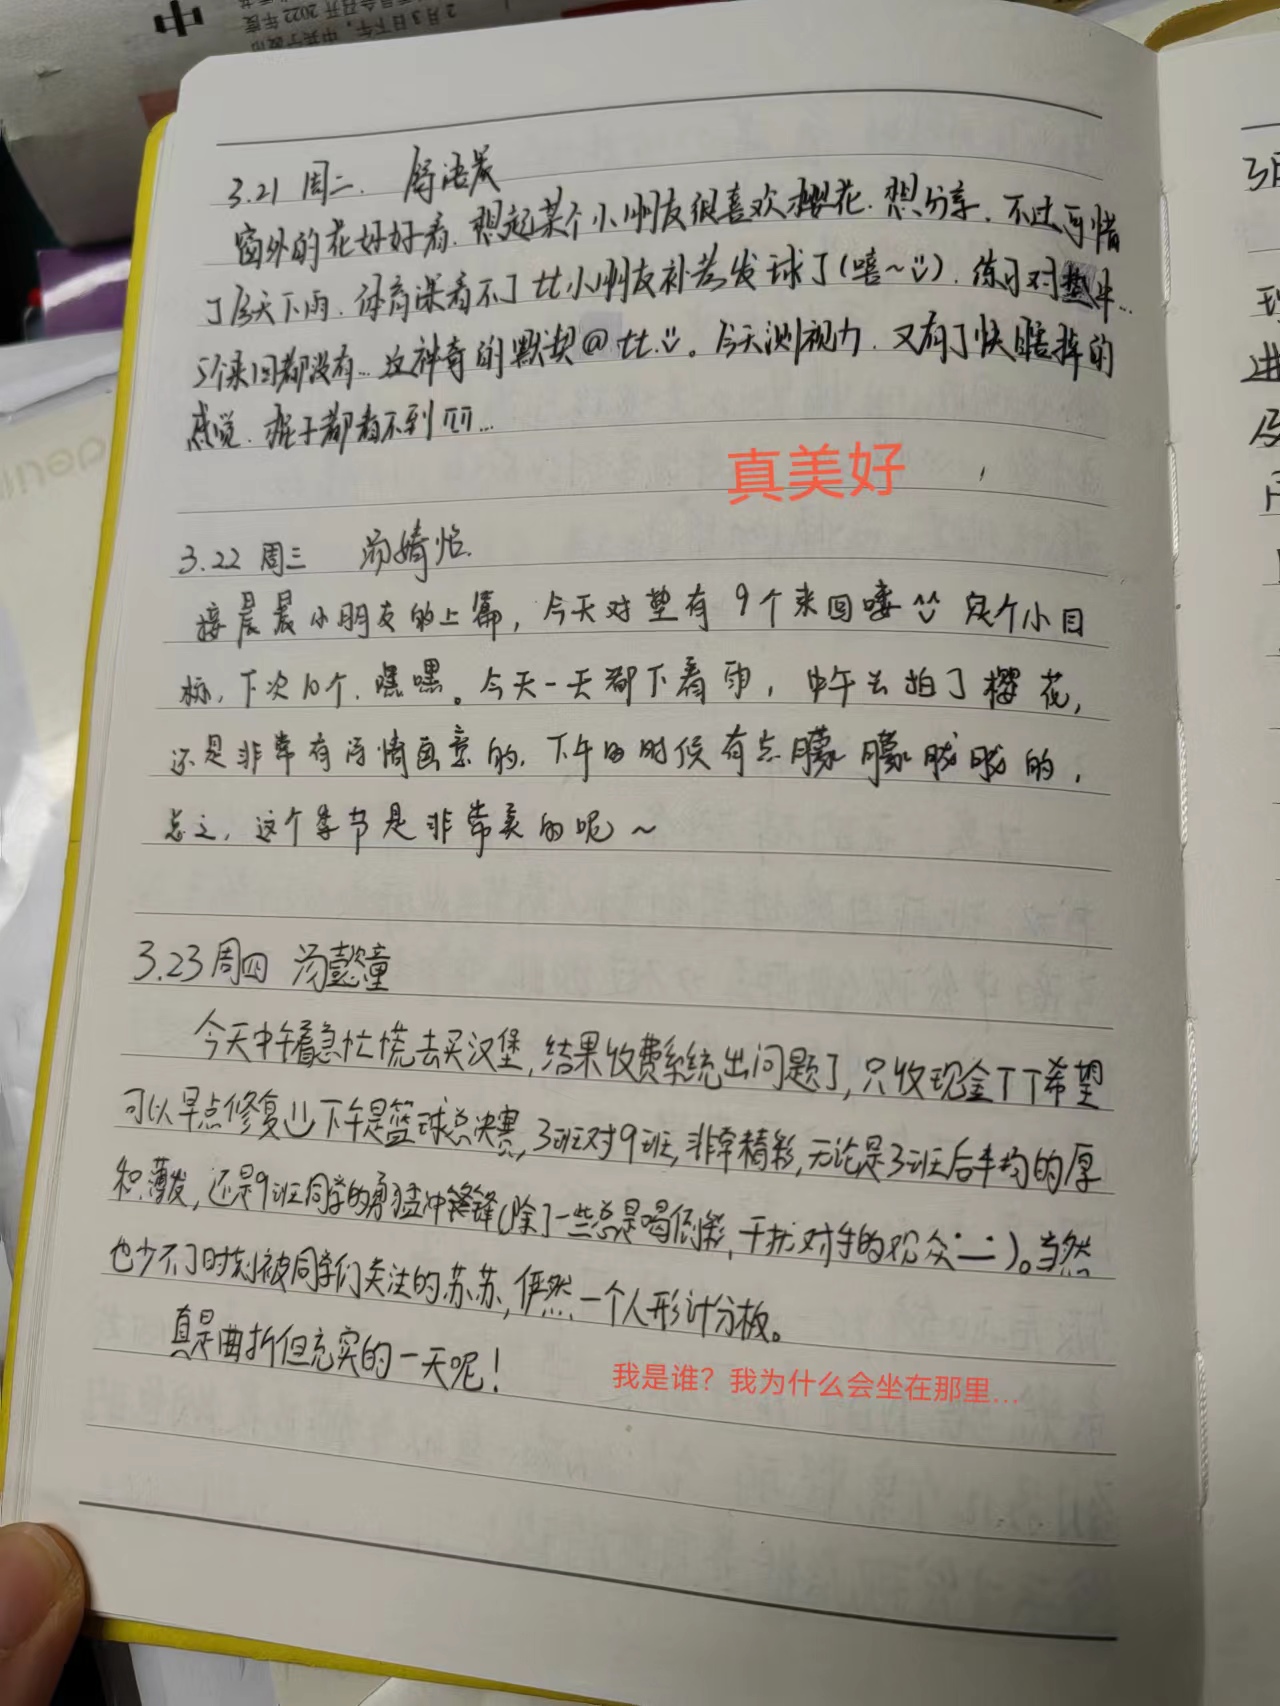 3.21 周二. 舒语晨
窗外的花好好看.想起某个小朋友很喜欢樱花.想分享.不过可惜
了今天下雨.体育课看不了tt小朋友补考发球了(嘻~).练习对垫球...
5个来回都没有...这神奇的默契@tt.。今天测视力.又有了快瞎掉的
感觉.推子都看不到TT...
真美好
3.22 周三 汤婧怡.
接晨晨小朋友的上篇,今天对垫有9个来回喽^^ 定个小目
标,下次10个,嘿嘿。今天一天都下着雨,中午去拍了樱花,
还是非常有诗情画意的.下午的时候有点朦朦胧胧的,
总之,这个季节是非常美的呢~
3.23周四 汤懿童
今天中午着急忙慌去买汉堡,结果收费系统出问题了,只收现金TT希望
可以早点修复 下午是篮球总决赛,3班对9班,非常精彩,无论是3班后半场的厚
积薄发,还是9班同学的勇猛冲锋(除了一些总是喝倒彩,干扰对手的观众)。当然
也少不了时刻被同学们关注的苏苏,俨然一个人形计分板。
真是曲折但充实的一天呢!
我是谁?我为什么会坐在那里...
3月